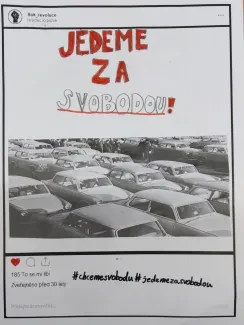 JEDEME
ZA
SVOBODOU!
185 To se mi líbí
#chcemesvobodu #jedemezasvobodou
Zveřejněno před 30 lety